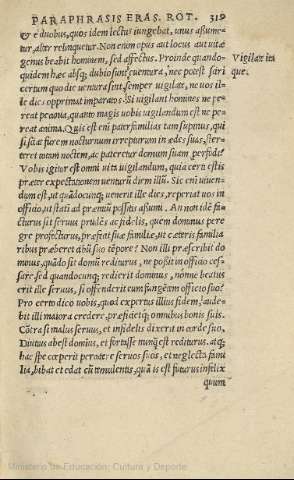 PARAPHRASIS ERAS. ROT. 319
& e duobus, quos idem lectus iungebat, unus assume-
tur, alter relinquetur. Non enim opus aut locus aut uitæ
genus beabit hominem, sed affectus. Proinde quando-
quidem hæc absq; dubio sunt uentura, nec potest sciri
certum quo die uentura sint, semper uigilate, ne uos il-
le dies opprimat imparatos. Si uigilant homines ne pe-
reat pecunia, quanto magis uobis uigilandum est ne pe-
reat anima. Quis est eni paterfamilias tam supinus, qui
si sciat furem nocturnum irrepturum in ædes suas, ster-
teret totam noctem, ac pateretur domum suam perfodi?
Vobis igitur est omni uita uigilandum, quia certu est is
præter expectationem uenturũ diem illũ. Sic eni uiuen-
dum est, ut quãdocunq; uenerit ille dies, reperiat uos in
officio, ut statim ad præmiũ possitis assumi. An non idẽ fa-
cturus sit seruus prudẽs ac fidelis, quem dominus pere
gre profecturus, præfecit suæ familiæ, ut cæteris familia
ribus præberet cibũ suo tẽpore? Non illi præscribit do
minus, quãdo sit domũ rediturus, ne possit in officio ces-
sare sed quandocunq; redierit dominus, nónne beatus
erit ille seruus, si offenderit eum fungẽtem officio suo?
Pro certo dico uobis, quod expertus illius fidem, audebit
illi maiora credere, præficietq; omnibus bonis suis.
Cõtra si malus seruus, et infidelis dixerit in corde suo,
Diutius abest domĩus, et fortasse nunq̃ est rediturus. atq;
hac spe cœperit percutere seruos suos, et neglecta fami
lia, bibat et edat cũ temulentis, quã is est futurus infelix
quum
Vigilate ita
que.
Ministerio de Educación, Cultura y Deporte